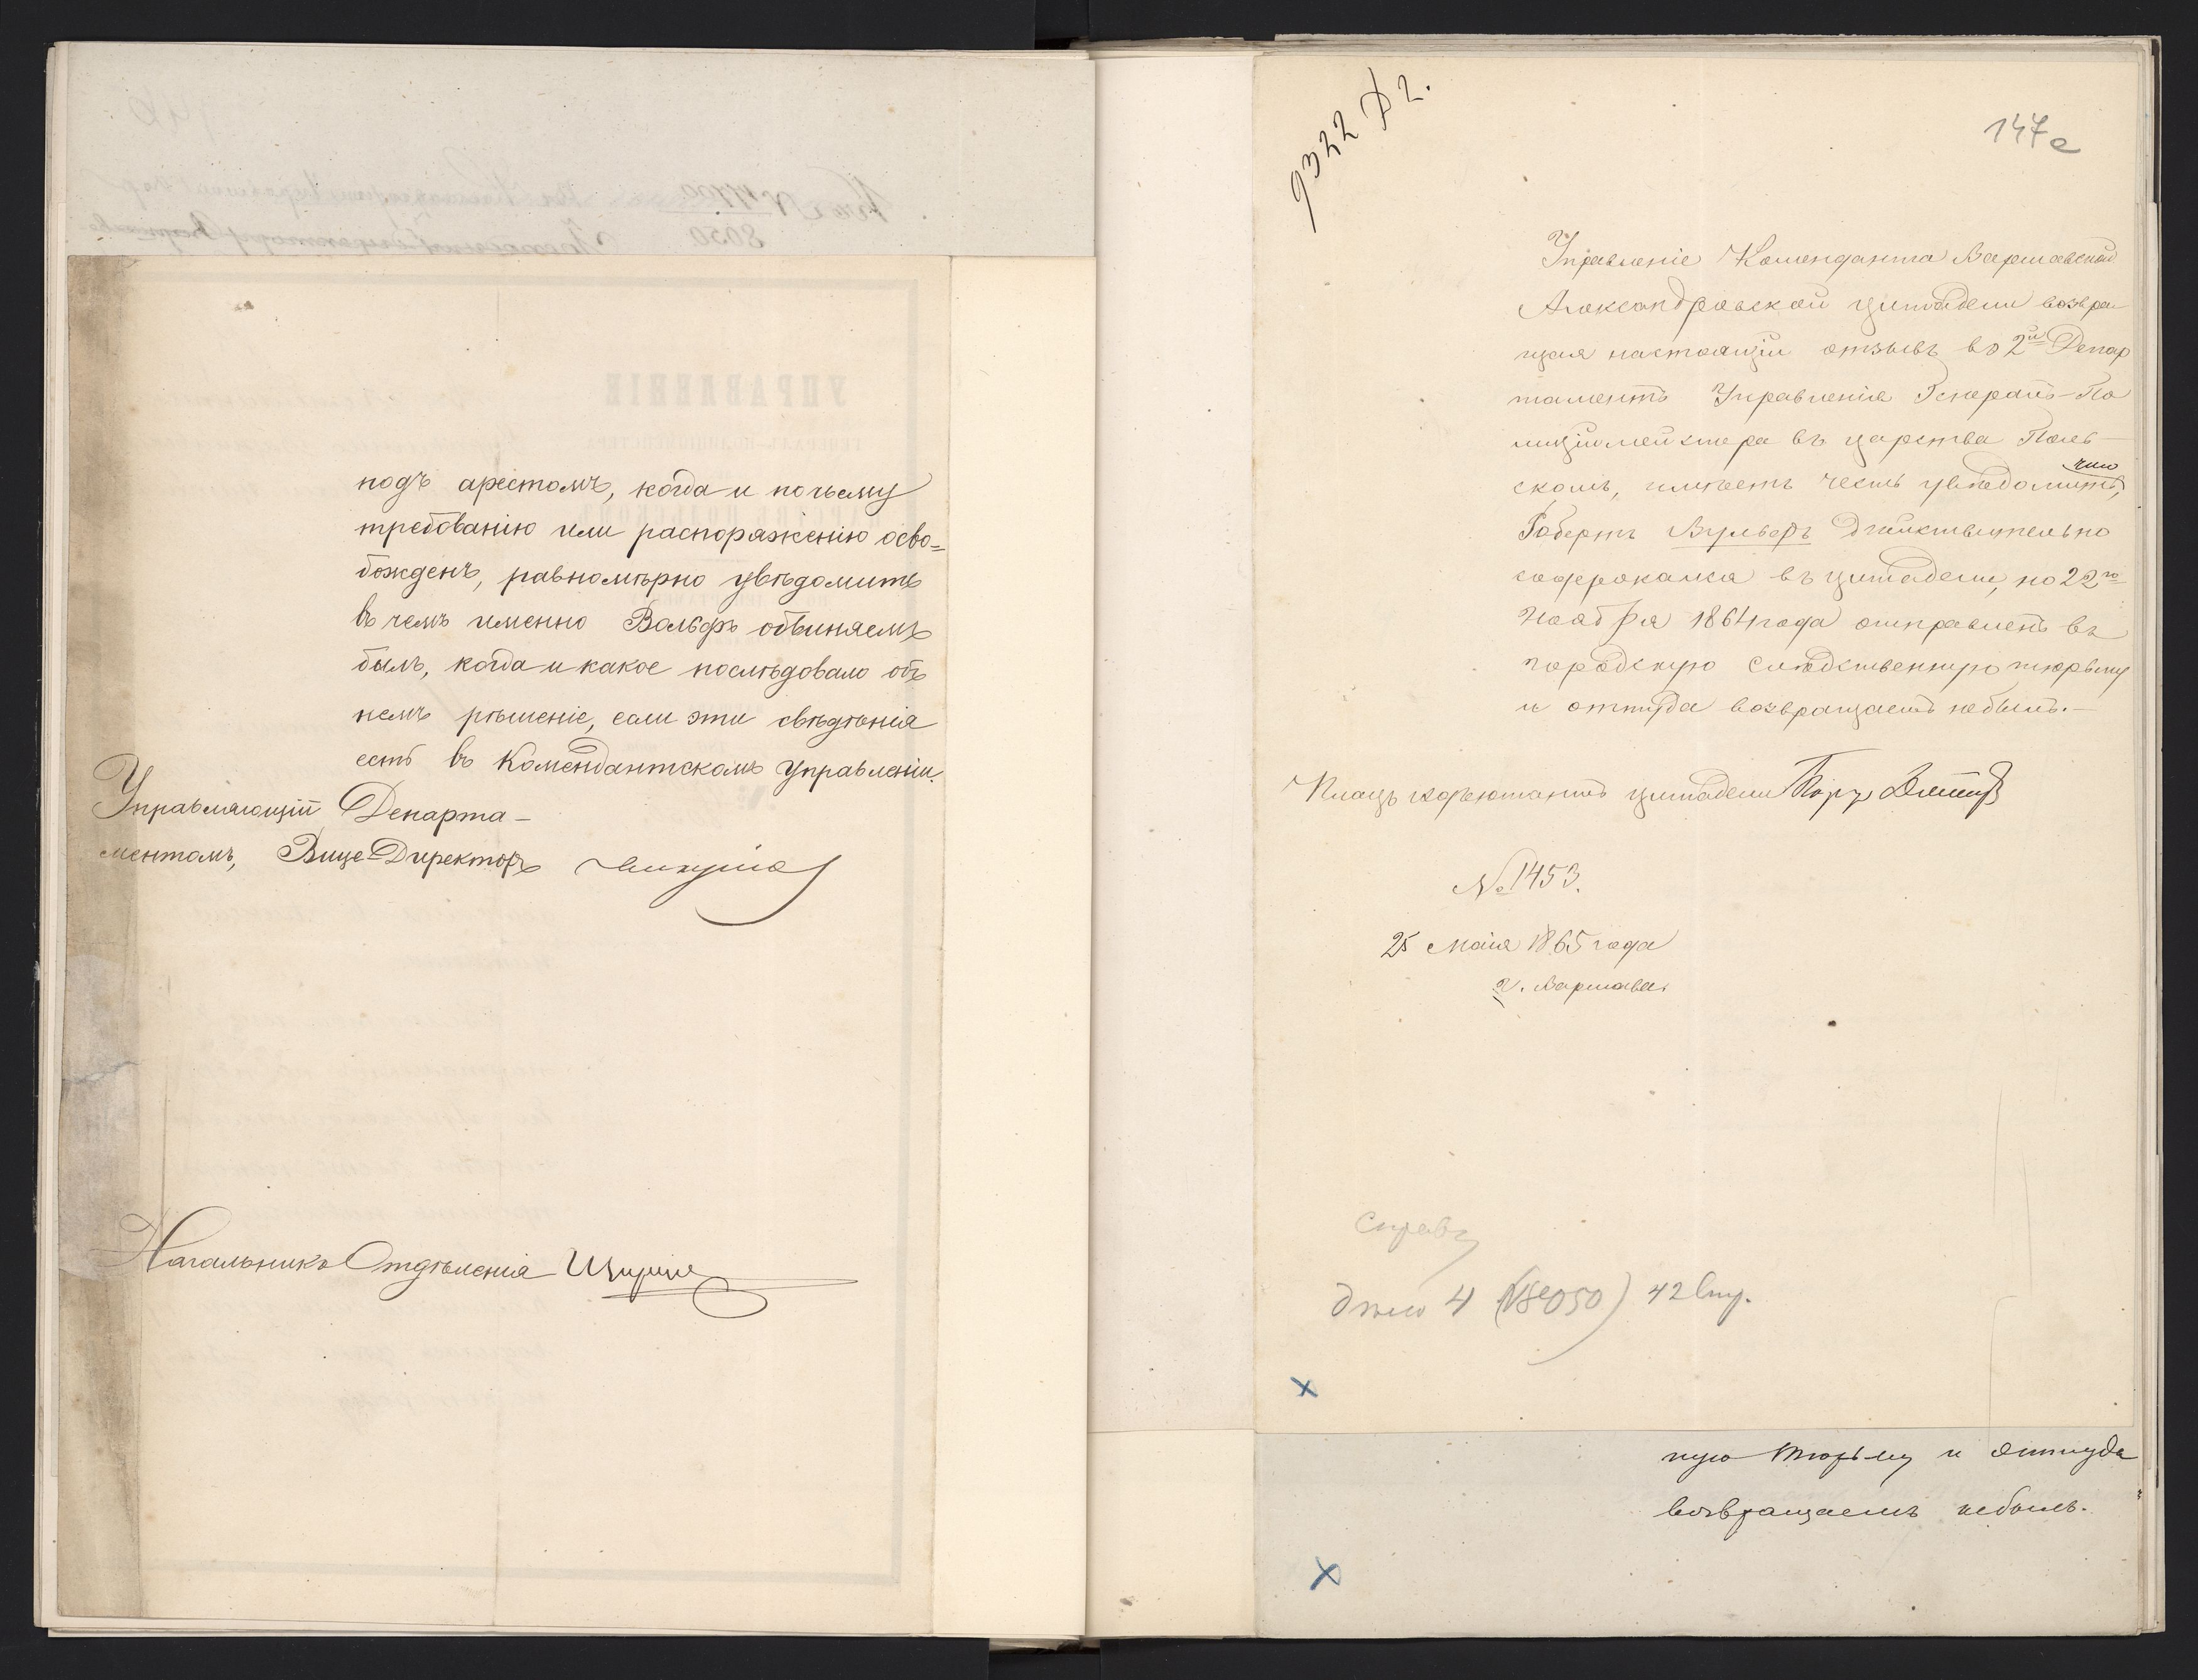 подъ арестомъ, когда и по чьему
требованію или распоряженію осво=
божденъ, равномѣрно увѣдомить
въ чемъ именно Вольфъ обвиняемъ
былъ, когда и какое послѣдовало объ
немъ рѣшеніе, если эти свѣдѣнія
есть въ Комендантскомъ Управленіи.
Управляющій Департа-
ментомъ, Вице-Директоръ
Начальникъ Отдѣленія
9322 Д 2.
147e
Управленіе Коменданта Варшавской
Александровской цитадели возвра-
щая настоящій отзывъ во 2й Депар
таментъ Управленія Генералъ-По
лиціймейстера въ царствѣ Поль-
скомъ, имѣетъ честь увѣдомить, что
Робертъ Вульфъ дѣйствительно
содержался въ цитадели, но 22го
Ноября 1864 года отправленъ въ
городскую слѣдственную тюрьму
и оттуда возвращаемъ небылъ.-
Плацъ адъютантъ цитадели
№ 1453.
25 Маія 1865 года
г. Варшава.
Справк
дѣло 4 (№ 8050) 42 вну.
ную тюрьму и оттуда
возвращаемъ небылъ.